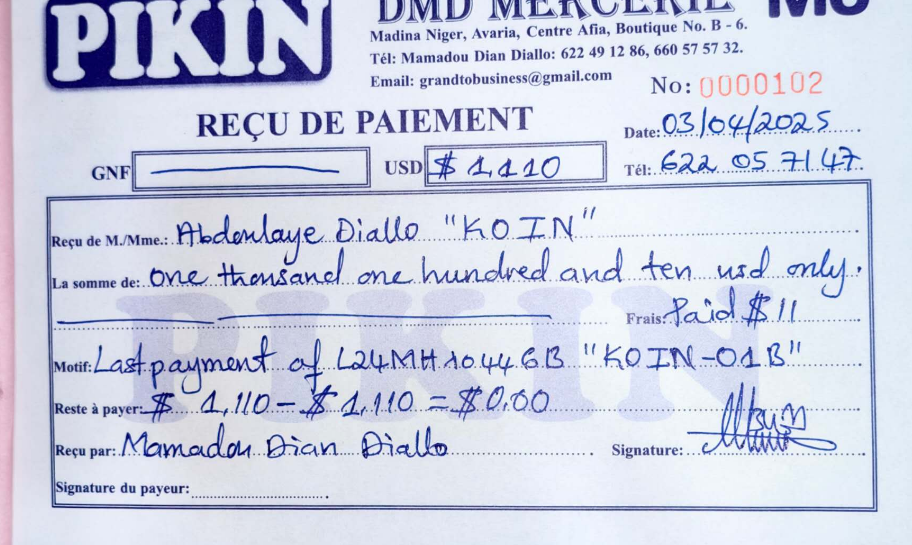 PIKIN
DMD MERCERIE
Madina Niger, Avaria, Centre Afia, Boutique No. B - 6.
Tél: Mamadou Dian Diallo: 622 49 12 86, 660 57 57 32.
Email: grandtobusiness@gmail.com
No: 0000102
REÇU DE PAIEMENT
Date: 03/04/2025
GNF USD $ 1,110
Tél: 622 05 71 47
Reçu de M./Mme.: Abdoulaye Diallo "KOIN"
La somme de: One thousand one hundred and ten usd only.
Frais: Paid $ 11
Motif: Last payment of L24MH1044GB "KOIN-01B"
Reste à payer: $ 1,110 - $ 1,110 = $0.00
Reçu par: Mamadou Dian Diallo Signature:
Signature du payeur:
PIKIN